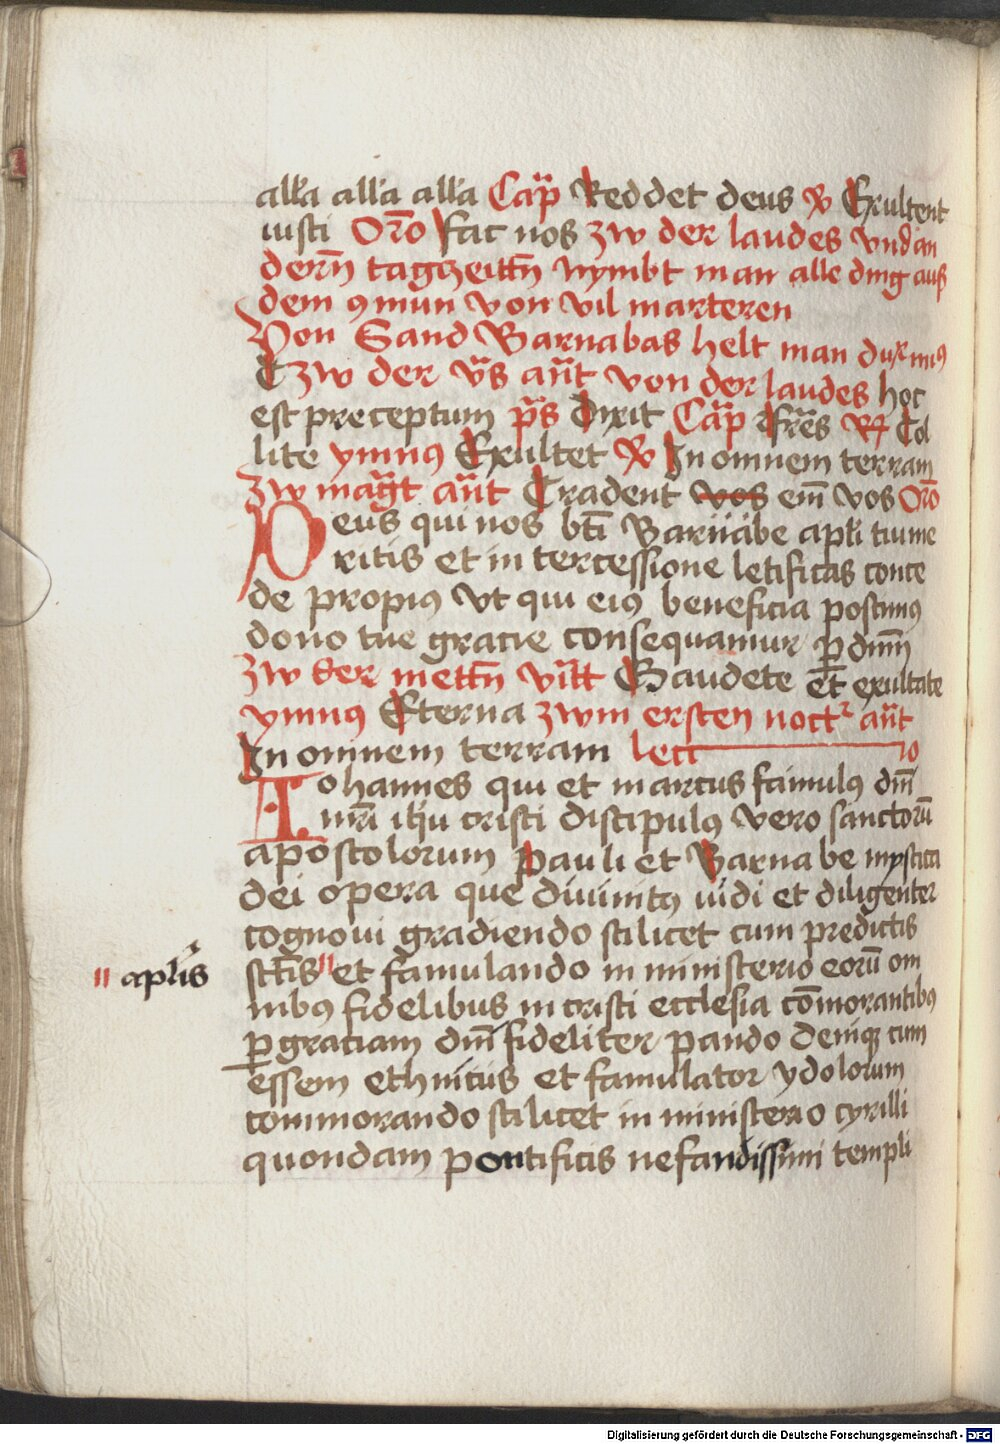 alla alla alla Cap̄ Reddet deus ꝟ Exultent
iusti Orō fac nos zw der laudes vnd an
dern̄ tagzeittn̄ nymbt man alle ding auß
dem 9mun von vil marteren
Von Sand Barnabas helt man duplex min9
zw der v̄s an̄t von der laudes hoc
est preceptum ps̄ Dixit Cap̄ frēs ꝶ Tol
lite ymn9 Exultet ꝟ In omnem terram
zw maḡt an̄t Tradent vos em̄ vos Orō
Deus qui nos btī Barnabe apłi tui me
ritis et in tercessione letificas conce
de propi9 vt qui ei9 beneficia poscim9
dono tue gracie consequamur ꝑ dnm̄
zw der mettn̄ vīt Gaudete et exultate
ymn9 Eterna zwm ersten noct2 an̄t
In omnem terram lectio
Iohannes qui et marcus famul9 dnī
nrī ihu cristi discipul9 vero sanctorū
apostolorum Pauli et Barnabe mystica
dei opera que diuinit9 uidi et diligenter
cognoui gradiendo scilicet cum predictis
sctīs || et famulando in ministerio eorū om
|| apłis
nib9 fidelibus in cristi ecclesia cōmorantib9
ꝑ graciam dnī fideliter pando Deniqꝫ cum
essem ethnicus et famulator ydolorum
commorando scilicet in ministerio cyrilli
quondam pontificis nefandissimi templi
Digitalisierung gefördert durch die Deutsche Forschungsgemeinschaft - DFG